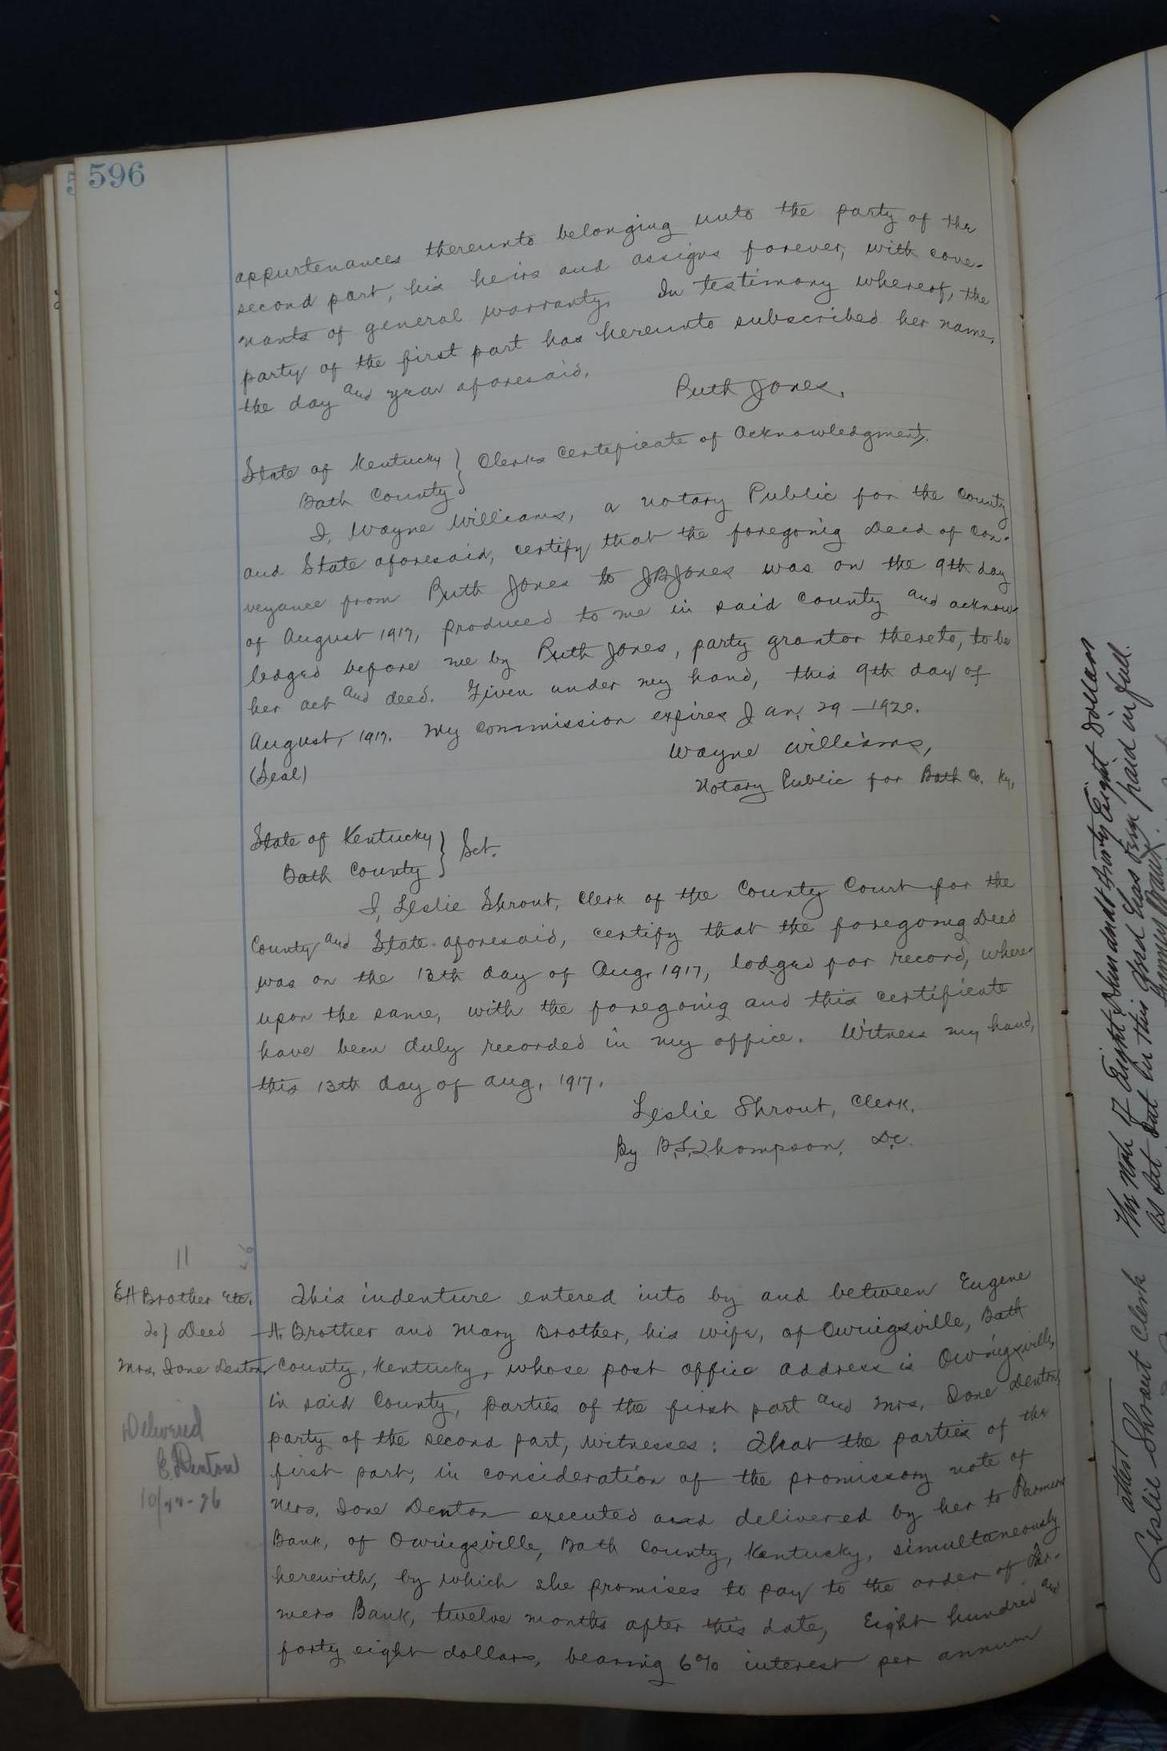 596
appurtenances thereunto belonging unto the party of the
second part, his heirs and assigns forever, with cove-
nants of general warranty. In testimony whereof, the
party of the first part has hereunto subscribed her name,
the day and year aforesaid.
Ruth Jones.
State of Kentucky } Clerks Certificate of Acknowledgment.
Bath County
I, Wayne Williams, a Notary Public for the County
and State aforesaid, certify that the foregoing Deed of Con-
veyance from Ruth Jones to J B Jones was on the 9th day
of August 1917, produced to me in said County and acknow-
ledged before me by Ruth Jones, party grantor thereto, to be
her act and deed. Given under my hand, this 9th day of
August, 1917. My Commission expires Jan, 29 - 1920.
(Seal)
Wayne Williams,
Notary Public for Bath Co. Ky,
State of Kentucky } Sct.
Bath County
I, Leslie Shrout, Clerk of the County Court for the
County and State aforesaid, certify that the foregoing Deed
was on the 13th day of Aug, 1917, lodged for record, where-
upon the same, with the foregoing and this certificate
have been duly recorded in my office. Witness my hand,
this 13th day of Aug, 1917.
Leslie Shrout, Clerk.
By B.F. Thompson, D.C.
11
E H Brother etc.
To / Deed
Mrs. Ione Denton
Delivered
E. Denton
This indenture entered into by and between Eugene
H. Brother and Mary Brother, his wife, of Owingsville, Bath
County, Kentucky, whose post office address is Owingsville,
in said County, parties of the first part and Mrs. Ione Denton,
party of the second part, Witnesses: That the parties of the
first part, in consideration of the promissory note of
Mrs. Ione Denton executed and delivered by her to Farmers
Bank, of Owingsville, Bath County, Kentucky, simultaneously
herewith, by which she promises to pay to the order of Far-
mers Bank, twelve months after this date, Eight hundred and
forty eight dollars, bearing 6% interest per annum
The note of Eight Hundred thirty Eight Dollars
as set out in this deed has been paid in full.
attest
Leslie Shrout Clerk